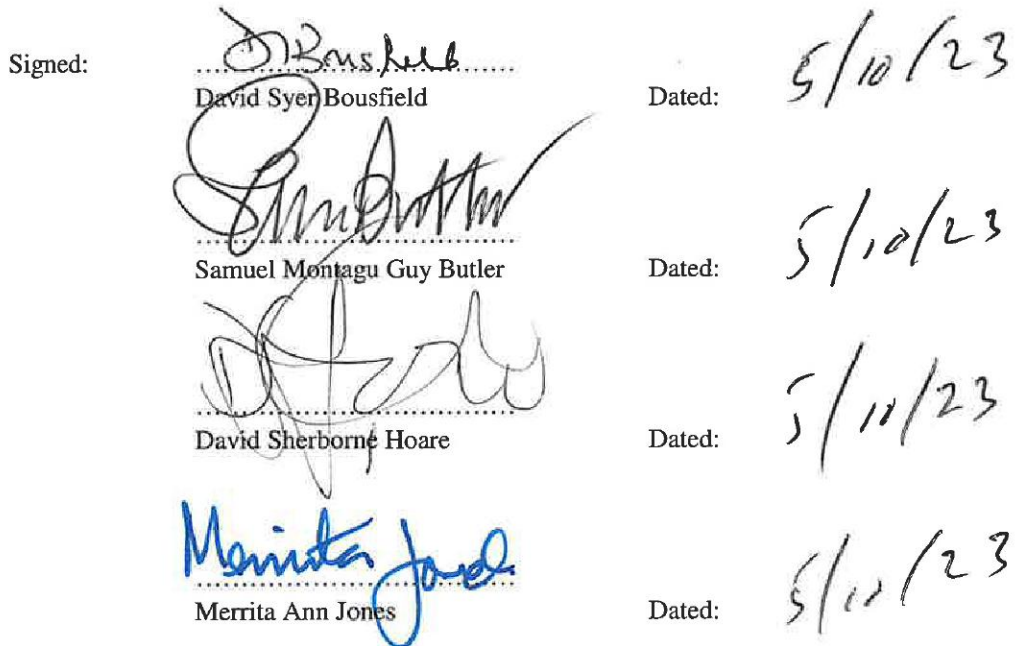 Signed:
D Bousfield
David Syer Bousfield
Dated:
5/10/23
Sam Butler
Samuel Montagu Guy Butler
Dated:
5/10/23
David Sherborne Hoare
Dated:
5/10/23
Merrita Jones
Merrita Ann Jones
Dated:
5/10/23